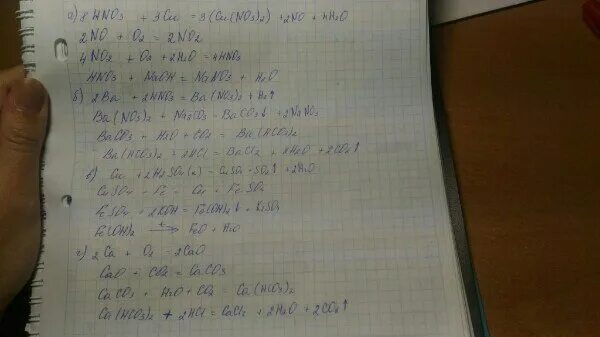 а) 8HNO3 + 3Cu = 3(Cu(NO3)2) + 2NO + 4H2O
2NO + O2 = 2NO2
4NO2 + O2 + 2H2O = 4HNO3
HNO3 + NaOH = NaNO3 + H2O
б) 2Ba + 2HNO3 = Ba(NO3)2 + H2↑
Ba(NO3)2 + Na2CO3 = BaCO3↓ + 2NaNO3
BaCO3 + H2O + CO2 = Ba(HCO3)2
Ba(HCO3)2 + 2HCl = BaCl2 + 2H2O + 2CO2↑
в) Cu + 2H2SO4(к) = CuSO4 + SO2↑ + 2H2O
CuSO4 + Fe = Cu + FeSO4
FeSO4 + 2KOH = Fe(OH)2↓ + K2SO4
Fe(OH)2 t→ FeO + H2O
г) 2Ca + O2 = 2CaO
CaO + CO2 = CaCO3
CaCO3 + H2O + CO2 = Ca(HCO3)2
Ca(HCO3)2 + 2HCl = CaCl2 + 2H2O + 2CO2↑